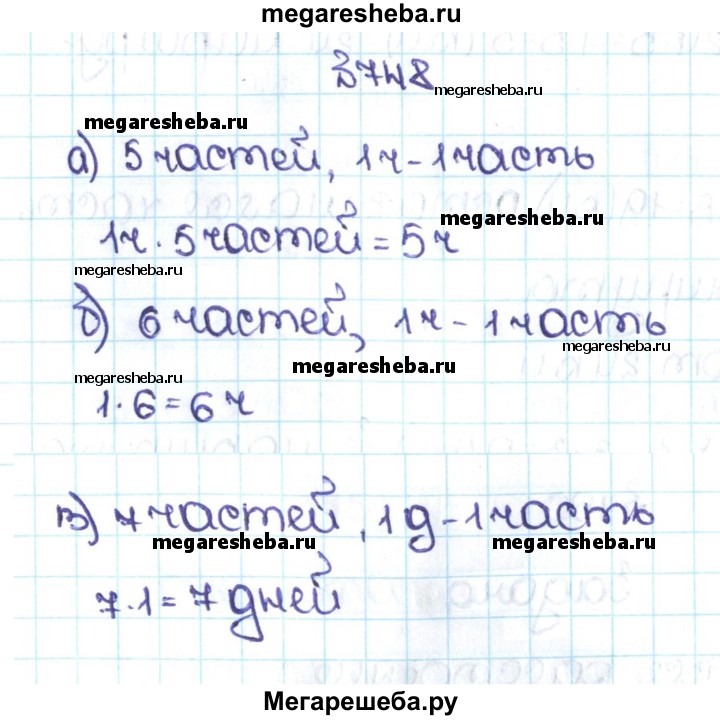 megaresheba.ru
№748
megaresheba.ru
megaresheba.ru
а) 5 частей, 1ч - 1 часть
megaresheba.ru
1ч · 5 частей = 5 ч
megaresheba.ru
б) 6 частей, 1ч - 1 часть
megaresheba.ru
megaresheba.ru
megaresheba.ru
1 · 6 = 6 ч
в) 7 частей, 1 д - 1 часть
megaresheba.ru
megaresheba.ru
7 · 1 = 7 дней
Мегарешеба.ру